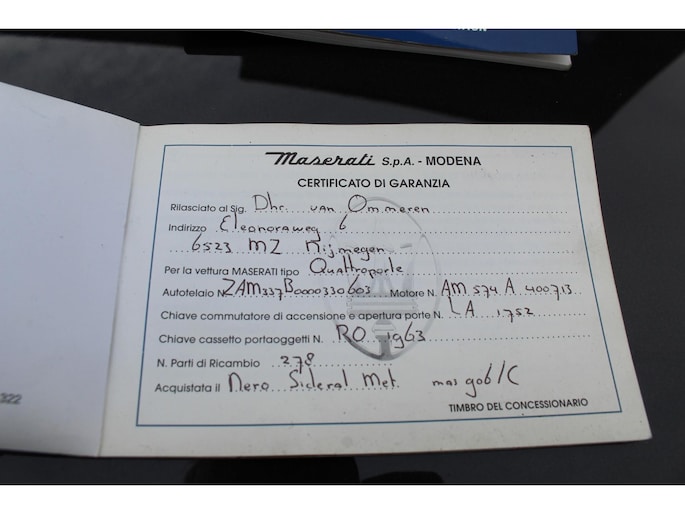 Maserati S.p.A. - MODENA
CERTIFICATO DI GARANZIA
Rilasciato al Sig. Dhr. van Ommeren
Indirizzo Eleonoraweg 6
6523 MZ Nijmegen
Per la vettura MASERATI tipo Quattroporte
Autotelaio N. ZAM337B0000330603 Motore N. AM 574 A 400713
Chiave commutatore di accensione e apertura porte N. LA 1752
Chiave cassetto portaoggetti N. RO 1963
N. Parti di Ricambio 278
Acquistata il Nero Sideral Met. mas 906/C
TIMBRO DEL CONCESSIONARIO
322